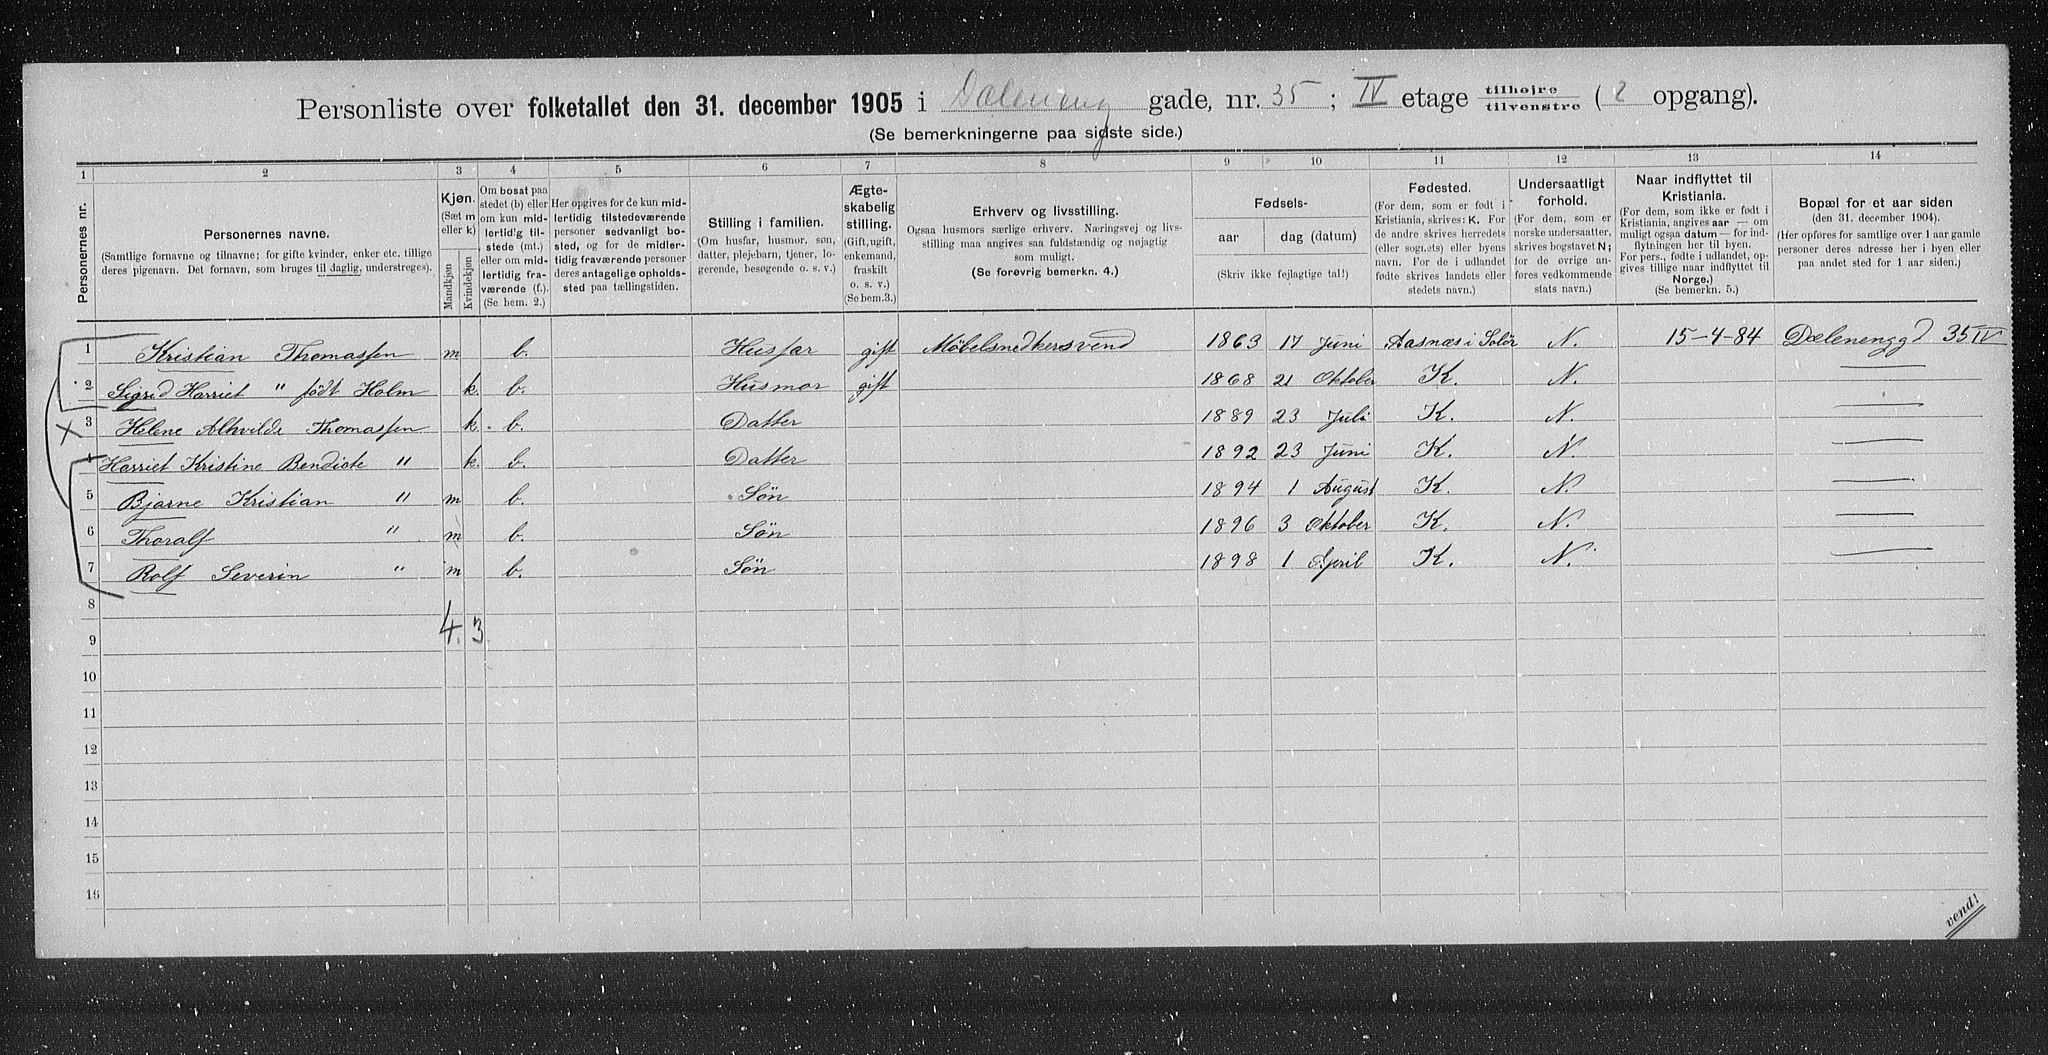 Personliste over folketallet den 31. december 1905 i Dæleneng gade, nr. 35 ; IV etage tilhøjre tilvenstre ( 2 opgang).
(Se bemerkningerne paa sidste side.)
1 2 3 4 5 6 7 8 9 10 11 12 13 14
Personernes nr.
Personernes navne.
(Samtlige fornavne og tilnavne; for gifte kvinder, enker etc. tillige
deres pigenavn. Det fornavn, som bruges til daglig, understreges).
Kjøn.
(Sæt m
eller k)
Mandkjøn
Kvindekjøn
Om bosat paa
stedet (b) eller
om kun mid-
lertidig til-
stede (mt.)
eller om mid-
lertidig fra-
værende (f.).
(Se bem. 2.)
Her opgives for de kun mid-
lertidig tilstedeværende
personer sedvanligt bo-
sted, og for de midler-
tidig fraværende personer
deres antagelige opholds-
sted paa tællingstiden.
Stilling i familien.
(Om husfar, husmor, søn,
datter, plejebarn, tjener, lo-
gerende, besøgende o. s. v.)
Ægte-
skabelig
stilling.
(Gift, ugift,
enkemand,
fraskilt
o. s. v.)
(Se bem.3.)
Erhverv og livsstilling.
Ogsaa husmors særlige erhverv. Næringsvej og livs-
stilling maa angives saa fuldstændig og nøjagtig
som muligt.
(Se forøvrig bemerkn. 4.)
Fødsels-
aar dag (datum)
(Skriv ikke fejlagtige tal!)
Fødested.
(For dem, som er født i
Kristiania, skrives: K. For
de andre skrives herredets
(eller sognets) eller byens
navn. For de i udlandet
fødte skrives landets eller
stedets navn.)
Undersaatligt
forhold.
(For dem, som er
norske undersaatter,
skrives bogstavet N;
for de øvrige an-
føres vedkommende
stats navn.)
Naar indflyttet til
Kristiania.
(For dem, som ikke er født i
Kristiania, angives aar — om
muligt ogsaa datum — for ind-
flytningen her til byen.
For pers., fødte i udlandet, op-
gives tillige naar indflyttet til
Norge.)
(Se bemerkn. 5.)
Bopæl for et aar siden
(den 31. december 1904).
(Her opføres for samtlige over 1 aar gamle
personer deres adresse her i byen eller
paa andet sted for 1 aar siden.)
1 Kristian Thomassen m b. Husfar gift Møbelsnedkersvend 1863 17 Juni Aasnæs i Solør N. 15-4-84 Dælenengg d 35 IV
2 Sigrid Harriet " født Holm k. b. Husmor gift 1868 21 Oktober K. N. —
3 Helene Alhvilde Thomassen k. b. Datter 1889 23 Juli K. N. —
4 Harriet Kristine Bendicte " k. b. Datter 1892 23 Juni K. N. —
5 Bjarne Kristian " m b. Søn 1894 1 August K. N. —
6 Thoralf " m b. Søn 1896 3 Oktober K. N. —
7 Rolf Severin " m b. Søn 1898 1 April K. N. —
8
9 4. 3
10
11
12
13
14
15
16
vend!